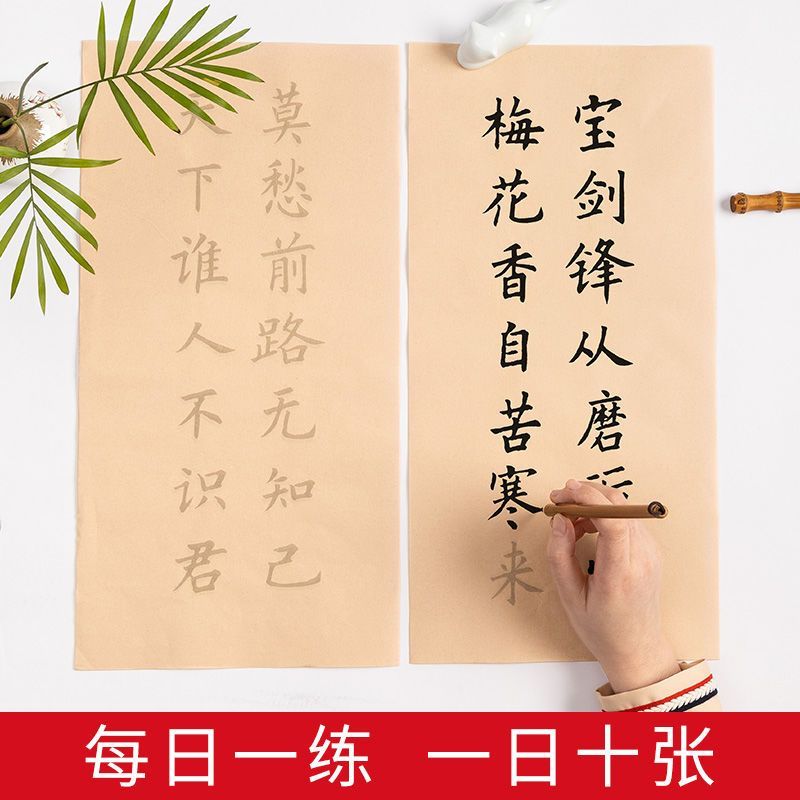 宝剑锋从磨
梅花香自苦寒来
莫愁前路无知己
天下谁人不识君
每日一练 一日十张